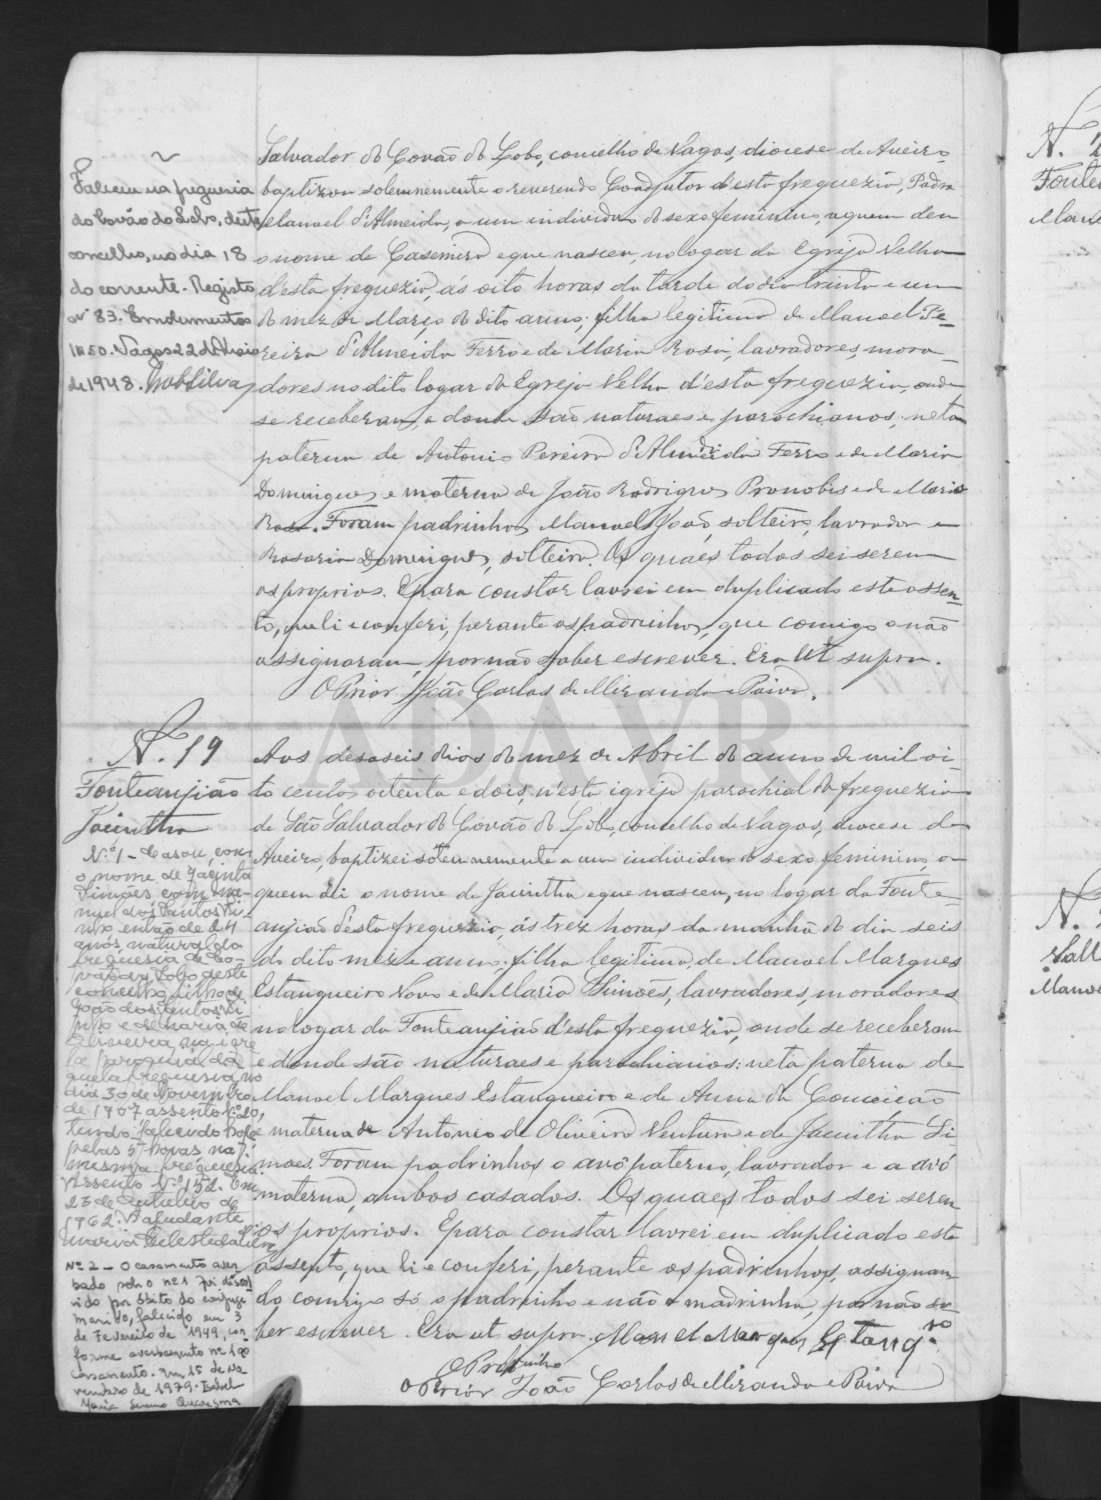 Falleceu na freguesia
do Covão do Lobo, deste
concelho, no dia 18
do corrente. Registo
nº 83. Emolumentos
1$50. Vagos 22 de Maio
de 1948.
Salvador do Covão do Lobo, concelho de Vagos, diocese de Aveiro
baptizou solemnemente o reverendo Coadjutor d'esta freguezia, Padre
Manoel d'Almeida, a um individuo do sexo feminino, a quem deu
o nome de Casemira e que nasceu, no logar da Egreja Velha
d'esta freguezia, ás oito horas da tarde do dia trinta e um
do mez de Março do dito anno, filha legitima de Manoel Pe-
reira d'Almeida Ferro e de Maria Rosa, lavradores, mora-
dores no dito logar da Egreja Velha d'esta freguezia, onde
se receberam, e donde são naturaes e parochianos, neta
paterna de Antonio Pereira d'Almeida Ferro e de Maria
Domingues e materna de João Rodrigues Pronobis e de Maria
Rosa. Foram padrinhos Manoel João, solteiro, lavrador e
Rosaria Domingues, solteira. Os quaes todos sei serem
os proprios. E para constar lavrei em duplicado este assen-
to, que li e conferi, perante os padrinhos, que comigo o não
assignaram, por não saber escrever. Era ut supra.
O Prior João Carlos de Miranda e Paiva.
N. 19
Fonteanjião
Jacintha
N.º 1 - Casou, com
o nome de Jacinta
Simões com Ma-
nuel dos Santos Pi-
nto, então de 24
anos, natural da
freguesia de Co-
vão do Lobo deste
concelho, filho de
João dos Santos Pi-
nto e de Maria de
Oliveira, na igre-
ja paroquial da-
quela freguesia, no
dia 30 de Novembro
de 1907 assento nº 20,
tendo falecido hoje
pelas 5 horas na
mesma freguesia.
Assento N.º 152. Em
23 de Outubro de
1962. A ajudante
Maria Celeste da Silva
Nº 2 - O casamento aver
bado sob o nº 1 foi dissol
vido por óbito do conjuge
marido, falecido em 3
de Fevereiro de 1949, con-
forme averbamento nº 1 ao
casamento. Em 15 de No
vembro de 1979. Isabel
Maria Quaresma
Aos desaseis dias do mez de Abril do anno de mil oi-
to centos oitenta e dois, n'esta igreja parochial da freguezia
de São Salvador do Covão do Lobo, concelho de Vagos, diocese de
Aveiro, baptizei solemnemente a um individuo do sexo feminino, a
quem dei o nome de Jacintha e que nasceu, no logar da Fonte-
anjião d'esta freguezia, ás trez horas da manhã do dia seis
do dito mez e anno, filha legitima, de Manoel Marques
Estanqueiro Novo e de Maria Simões, lavradores, moradores
no logar da Fonteanjião d'esta freguezia, onde se receberam
e donde são naturaes e parochianos: neta paterna de
Manoel Marques Estanqueiro e de Anna da Conceição
e materna de Antonio de Oliveira Ventura e de Jacintha Si-
mões. Foram padrinhos o avô paterno, lavrador e a avó
materna, ambos casados. Os quaes todos sei serem
os proprios. E para constar lavrei em duplicado este
assento, que li e conferi, perante os padrinhos, assignan-
do comigo só o padrinho e não a madrinha, por não sa-
ber escrever. Era ut supra. Manoel Marques Estanqº
O Padrinho
O Prior João Carlos de Miranda e Paiva
ADAVR
N.
Fonte
Manoe
N.
Vall
Manoe